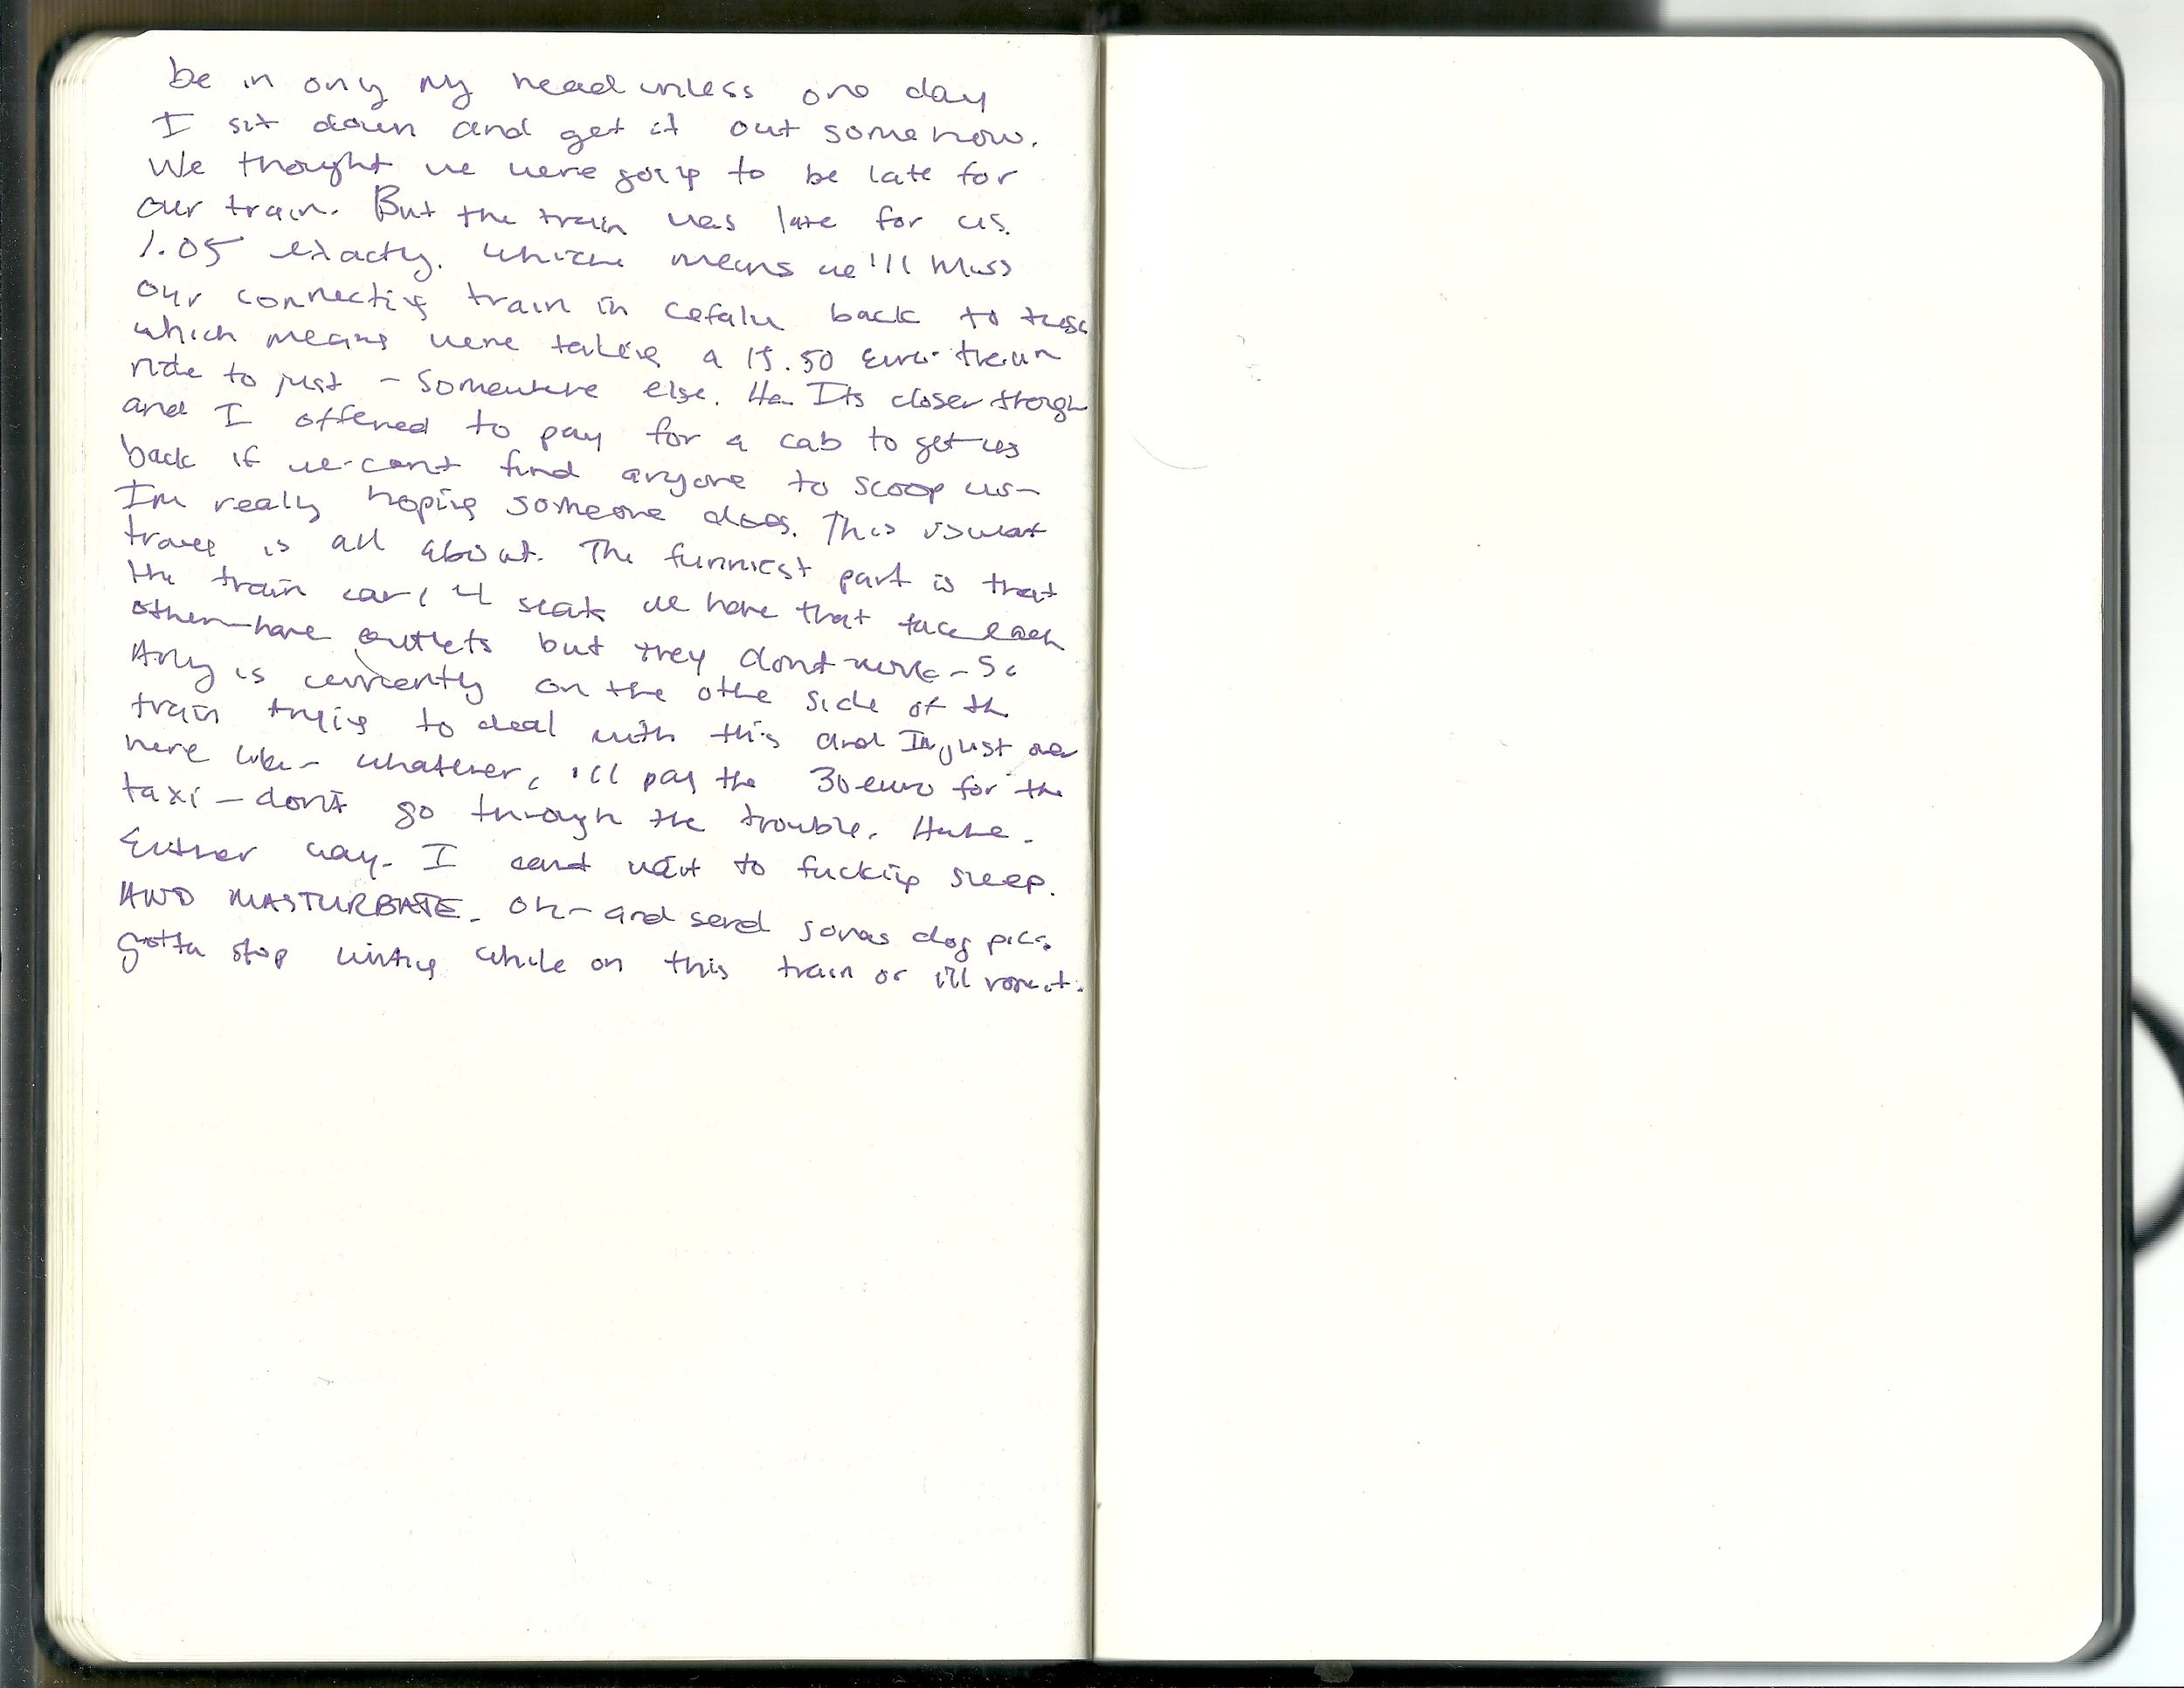 be in only my head unless one day
I sit down and get it out somehow.
We thought we were going to be late for
our train. But the train was late for us.
1.05 exactly. Which means we'll miss
our connecting train in Cefalu back to
which means were taking a 15.50 euro train
ride to just - somewhere else. Ha. Its closer though
and I offered to pay for a cab to get us
back if we cant find anyone to scoop us-
Im really hoping someone does. This is what
travel is all about. The funniest part is that
the train car, 4 seats we have that face each
other-have outlets but they dont work - So
is currently on the othe side of th
train trying to deal with this and Im just over
here like - whatever, ill pay the 30 euro for the
taxi - dont go through the trouble. Haha.
Either way. I cant wait to fucking sleep.
AND MASTURBATE. Oh - and send dog pics.
gotta stop writing while on this train or ill vomit.